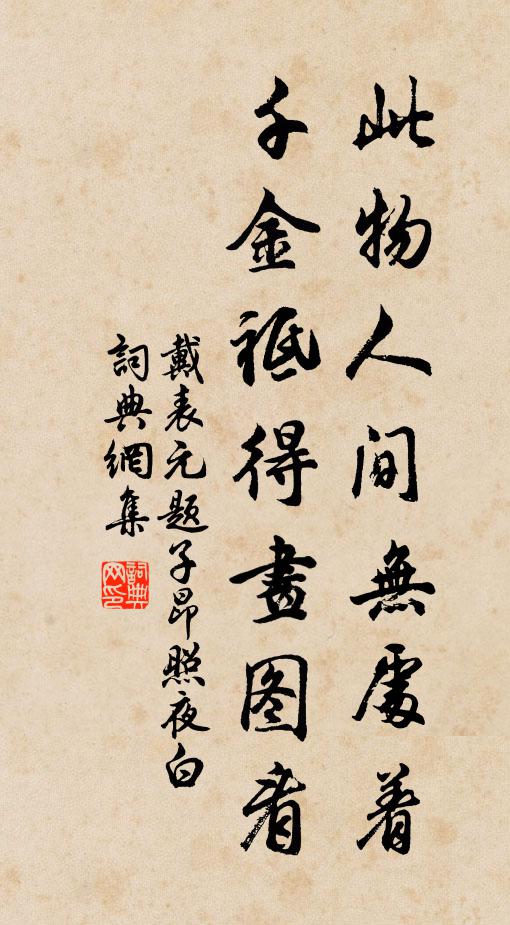 此物人间無處着
千金祗得畫图看
戴表元题子昂照夜白
詞典網集
詞典网印